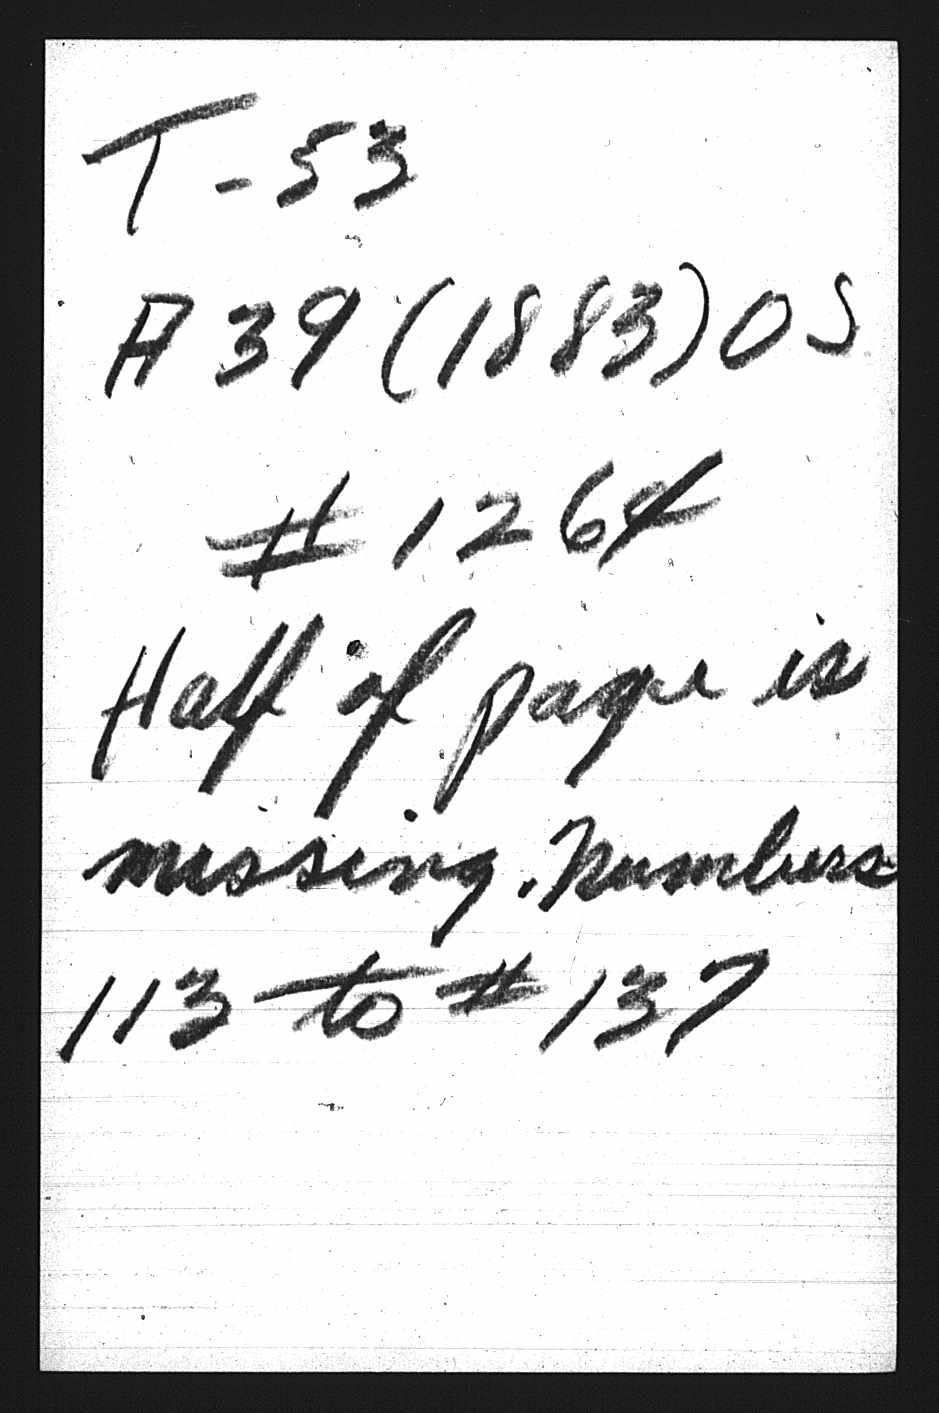 T-53
A39(1883)OS
#1264
Half of page is
missing. Numbers
113 to #137